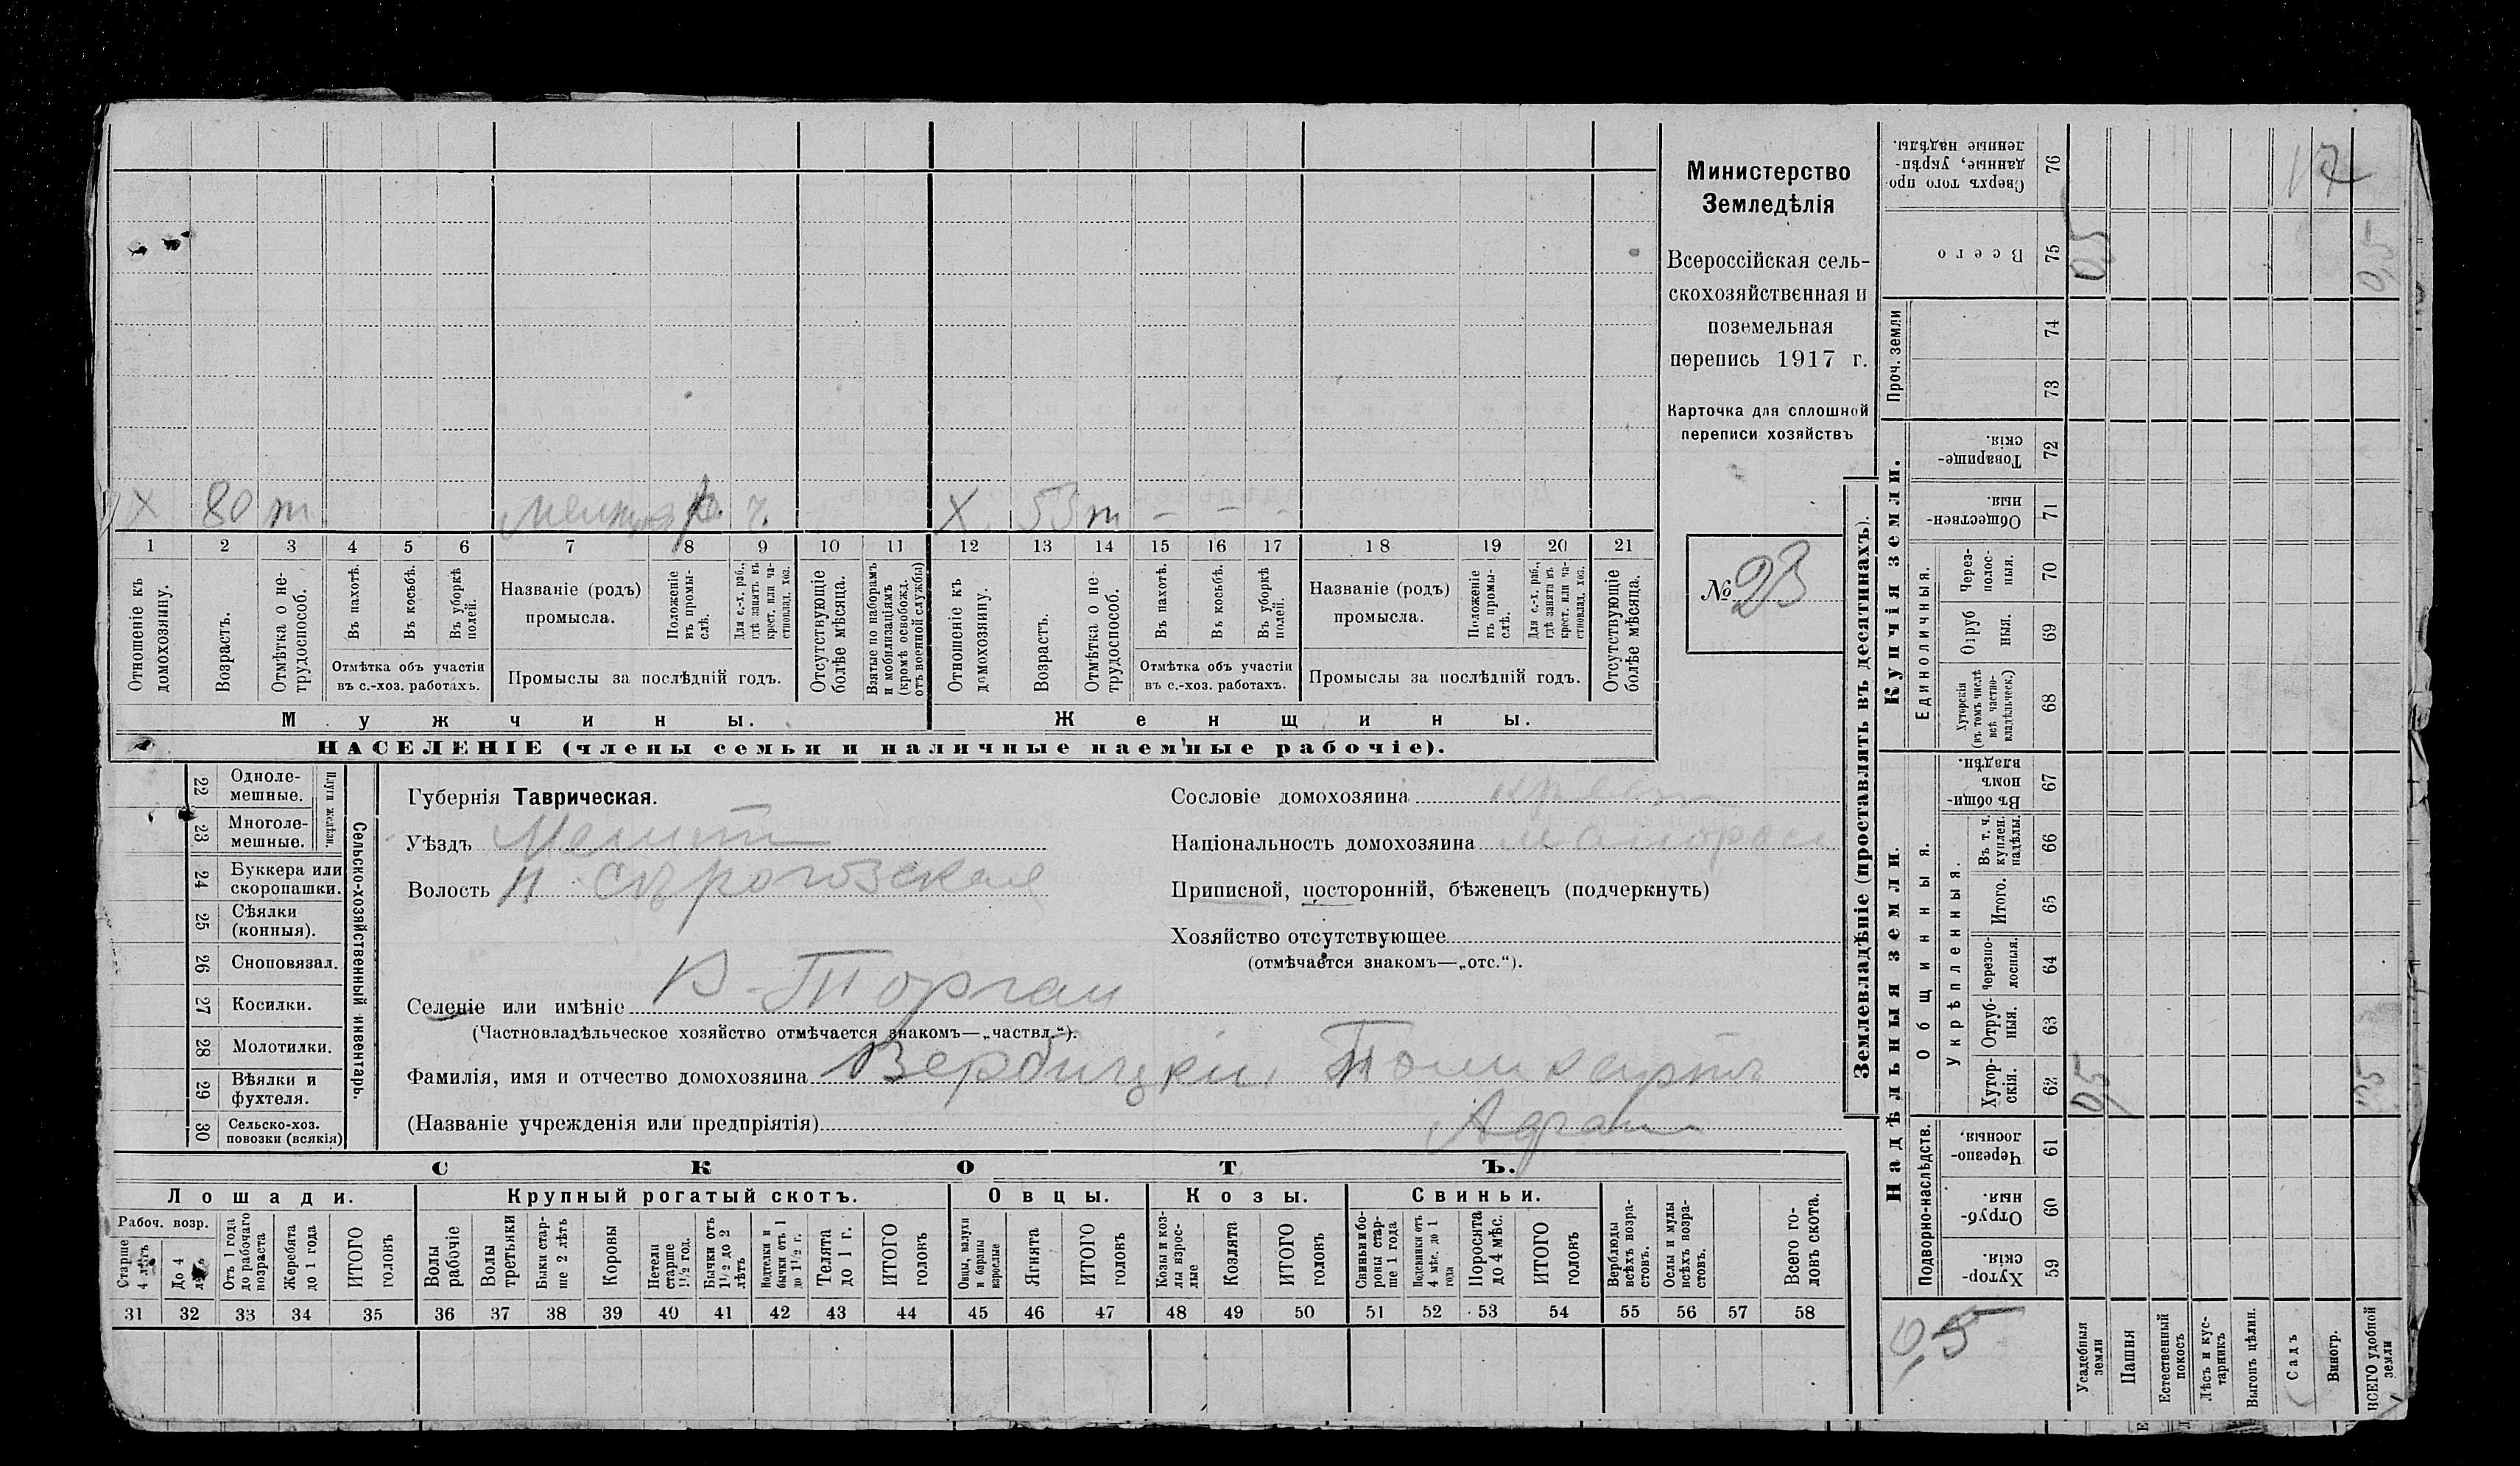 Министерство
Земледѣлія
Всероссійская сель-
скохозяйственная и
поземельная
перепись 1917 г.
Карточка для сплошной
переписи хозяйствъ
№ 23
X 80 т ч. X 53 т – – –
1 2 3 4 5 6 7 8 9 10 11 12 13 14 15 16 17 18 19 20 21
Отношеніе къ домохозяину.
Возрастъ.
Отмѣтка о не-трудоспособ.
Въ пахотѣ.
Въ косьбѣ.
Въ уборкѣ полей.
Отмѣтка объ участіи
въ с.-хоз. работахъ.
Названіе (родъ)
промысла.
Положеніе въ промы-слѣ.
Для с.-х. раб., гдѣ занятъ въ крест. или ча-стновлад. хоз.
Промыслы за послѣдній годъ.
Отсутствующіе болѣе мѣсяца.
Взятые по наборамъ и мобилизаціямъ (кромѣ освобожд. отъ военной службы)
Отношеніе къ домохозяину.
Возрастъ.
Отмѣтка о не-трудоспособ.
Въ пахотѣ.
Въ косьбѣ.
Въ уборкѣ полей.
Отмѣтка объ участіи
въ с.-хоз. работахъ.
Названіе (родъ)
промысла.
Положеніе въ промы-слѣ.
Для с.-х. раб., гдѣ занята въ крест. или ча-стновлад. хоз.
Промыслы за послѣдній годъ.
Отсутствующіе болѣе мѣсяца.
Мужчины. Женщины.
НАСЕЛЕНІЕ (члены семьи и наличные наемные рабочіе).
22 Одноле-мешные.
23 Многоле-мешные.
Плуги желѣзн.
24 Буккера или скоропашки.
25 Сѣялки (конныя).
26 Сноповязал.
27 Косилки.
28 Молотилки.
29 Вѣялки и фухтеля.
30 Сельско-хоз. повозки (всякія)
Сельско-хозяйственный инвентарь.
Губернія Таврическая.
Уѣздъ Мелит
Волость Н. Сѣрогозская
Селеніе или имѣніе В-Торгаи
(Частновладѣльческое хозяйство отмѣчается знакомъ—„частвл.“).
Фамилія, имя и отчество домохозяина Вербицкій Поликарпъ
(Названіе учрежденія или предпріятія)
Сословіе домохозяина
Національность домохозяина малоросс
Приписной, посторонній, бѣженецъ (подчеркнуть)
Хозяйство отсутствующее
(отмѣчается знакомъ—„отс.“).
СКОТЪ.
Лошади. Крупный рогатый скотъ. Овцы. Козы. Свиньи.
Рабоч. возр.
Старше 4 лѣтъ
До 4 лѣтъ
Отъ 1 года до рабочаго возраста
Жеребята до 1 года
ИТОГО головъ
Волы рабочіе
Волы третьяки
Быки стар-ше 2 лѣтъ
Коровы
Нетели старше 1½ год.
Бычки отъ 1½ до 2 лѣтъ
Подтелки и бычки отъ 1 до 1½ г.
Телята до 1 г.
ИТОГО головъ
Овцы, валухи и бараны взрослые
Ягнята
ИТОГО головъ
Козы и коз-лы взрос-лые
Козлята
ИТОГО головъ
Свиньи и бо-ровы стар-ше 1 года
Подсвинки отъ 4 мѣс. до 1 года
Поросята до 4 мѣс.
ИТОГО головъ
Верблюды всѣхъ возра-стовъ.
Ослы и мулы всѣхъ возра-стовъ.
Всего го-ловъ скота.
31 32 33 34 35 36 37 38 39 40 41 42 43 44 45 46 47 48 49 50 51 52 53 54 55 56 57 58
Землевладѣніе (проставлять въ десятинахъ).
Надѣльныя земли. Купчія земли. Проч. земли
Подворно-наслѣдств.
Общинныя.
Укрѣпленныя.
Единоличныя.
Хутор-скія. 59
Отруб-ныя. 60
Черезпо-лосныя. 61
Хутор-скія. 62
Отруб-ныя. 63
Черезпо-лосныя. 64
Итого. 65
Въ т. ч. куплен. надѣлы. 66
Въ общи-номъ владѣн. 67
Хуторскія (въ томъ числѣ всѣ частно-владѣльческ.) 68
Отруб ныя. 69
Через-полос-ныя. 70
Обществен-ныя. 71
Товарище-скія. 72
73
74
Всего 75
Сверхъ того про-данные, укрѣп-ленные надѣлы. 76
Усадебныя земли 0,5 0,5
Пашня
Естественный покосъ
Лѣсъ и кус-тарникъ
Выгонъ цѣлин.
Садъ
Виногр.
ВСЕГО удобной земли 0,5 0,5
0,5
17